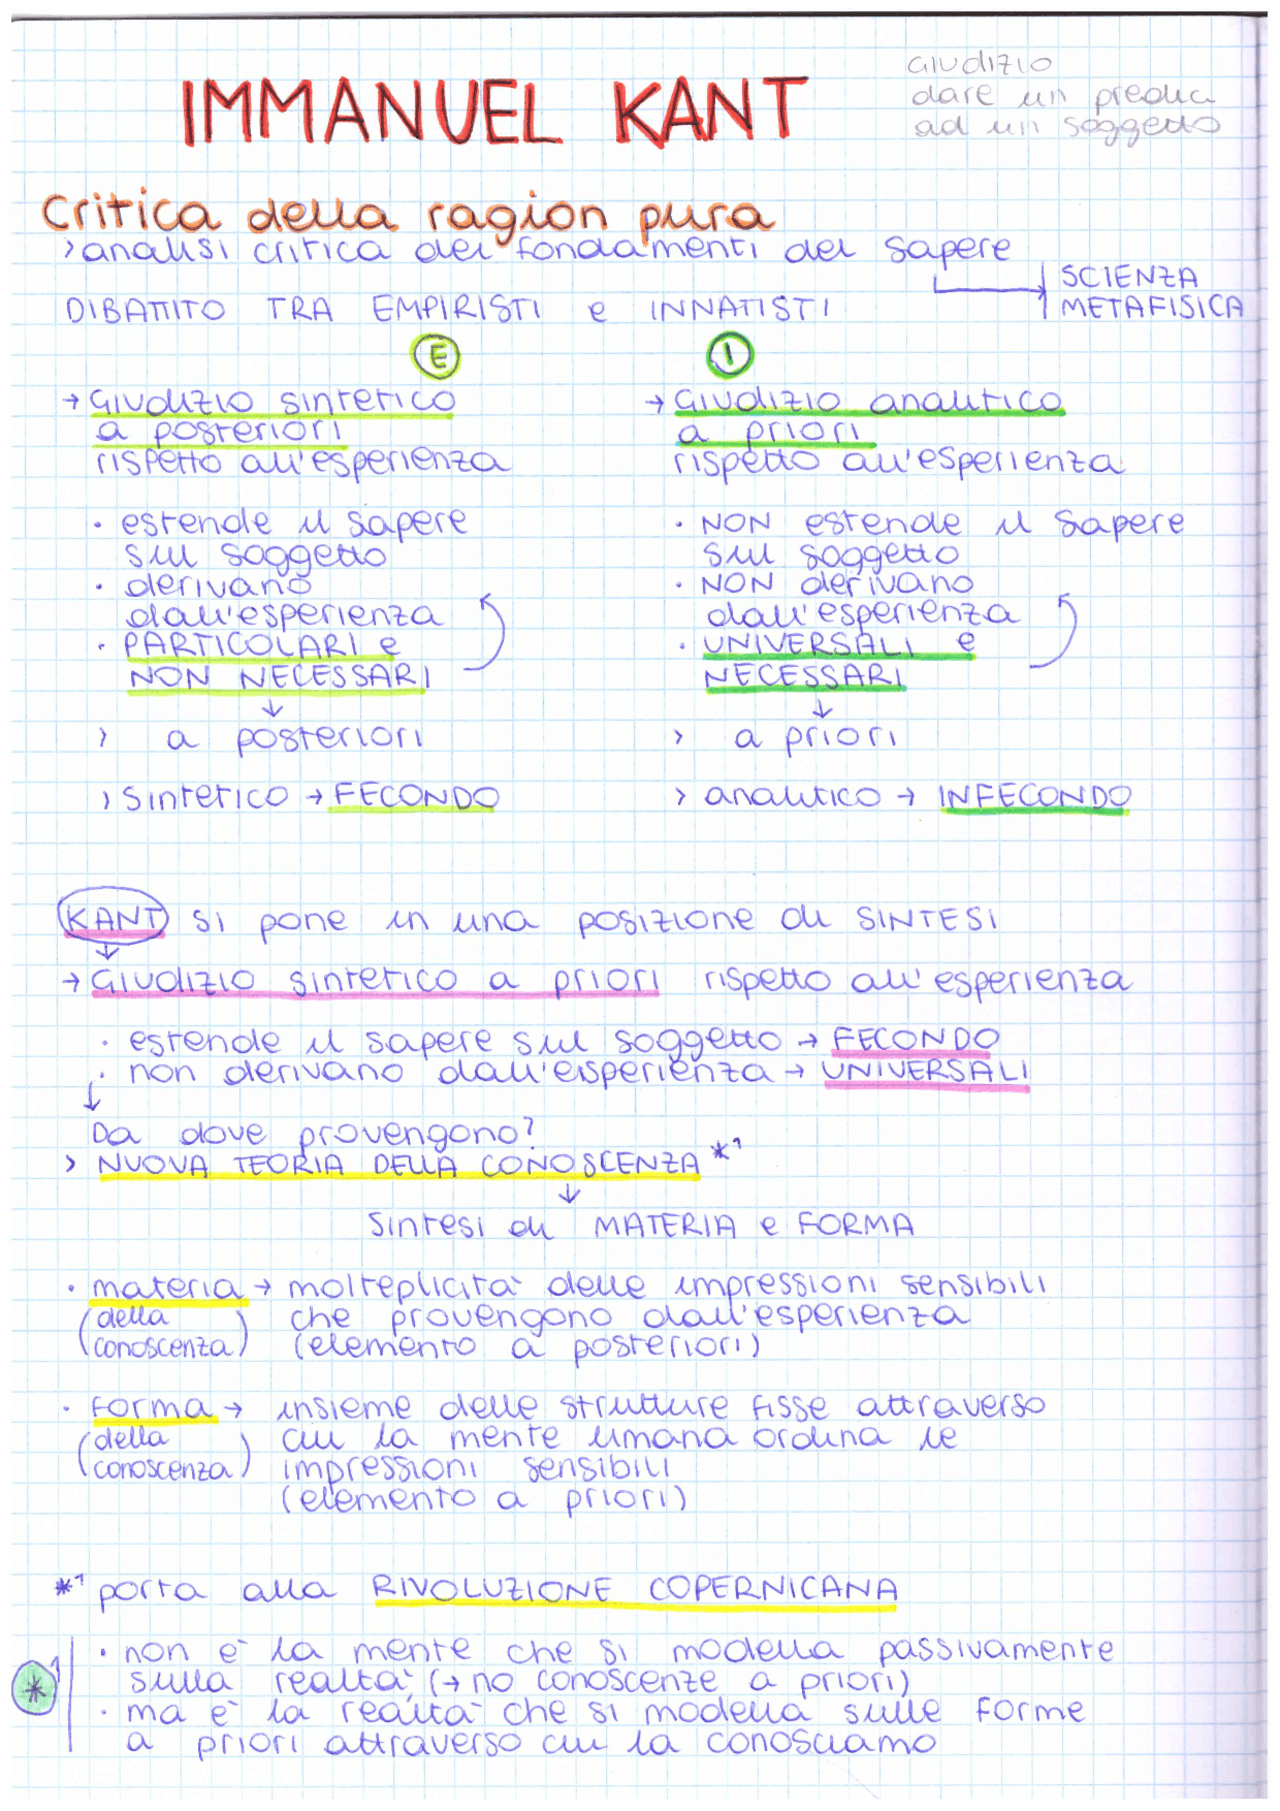 IMMANUEL KANT
GIUDIZIO
dare un predica
ad un soggetto
Critica della ragion pura
>analisi critica dei fondamenti del sapere
SCIENZA
METAFISICA
DIBATTITO TRA EMPIRISTI e INNATISTI
E
→ Giudizio sintetico
a posteriori
rispetto all'esperienza
· estende il sapere
sul soggetto
· derivano
dall'esperienza
· PARTICOLARI e
NON NECESSARI
↓
> a posteriori
> sintetico → FECONDO
I
→ Giudizio analitico
a priori
rispetto all'esperienza
· NON estende il sapere
sul soggetto
· NON derivano
dall'esperienza
· UNIVERSALI e
NECESSARI
↓
> a priori
> analitico → INFECONDO
KANT si pone in una posizione di SINTESI
↓
→ Giudizio sintetico a priori rispetto all'esperienza
· estende il sapere sul soggetto → FECONDO
· non derivano dall'eisperienza → UNIVERSALI
↓
Da dove provengono?
> NUOVA TEORIA DELLA CONOSCENZA *1
↓
sintesi di MATERIA e FORMA
· materia → molteplicità delle impressioni sensibili
(della che provengono dall'esperienza
conoscenza) (elemento a posteriori)
· forma → insieme delle strutture fisse attraverso
(della cui la mente umana ordina le
conoscenza) impressioni sensibili
(elemento a priori)
*1 porta alla RIVOLUZIONE COPERNICANA
· non è la mente che si modella passivamente
*1 sulla realtà (→ no conoscenze a priori)
· ma è la realtà che si modella sulle forme
a priori attraverso cui la conosciamo